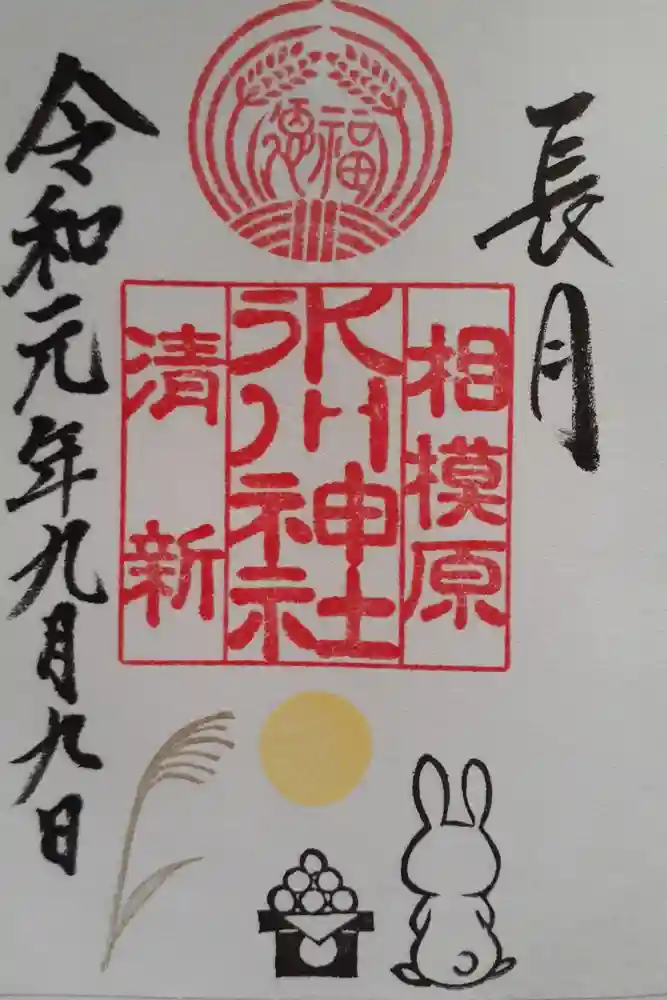 長月
福恩
相模原
氷川神社
清新
令和元年九月九日